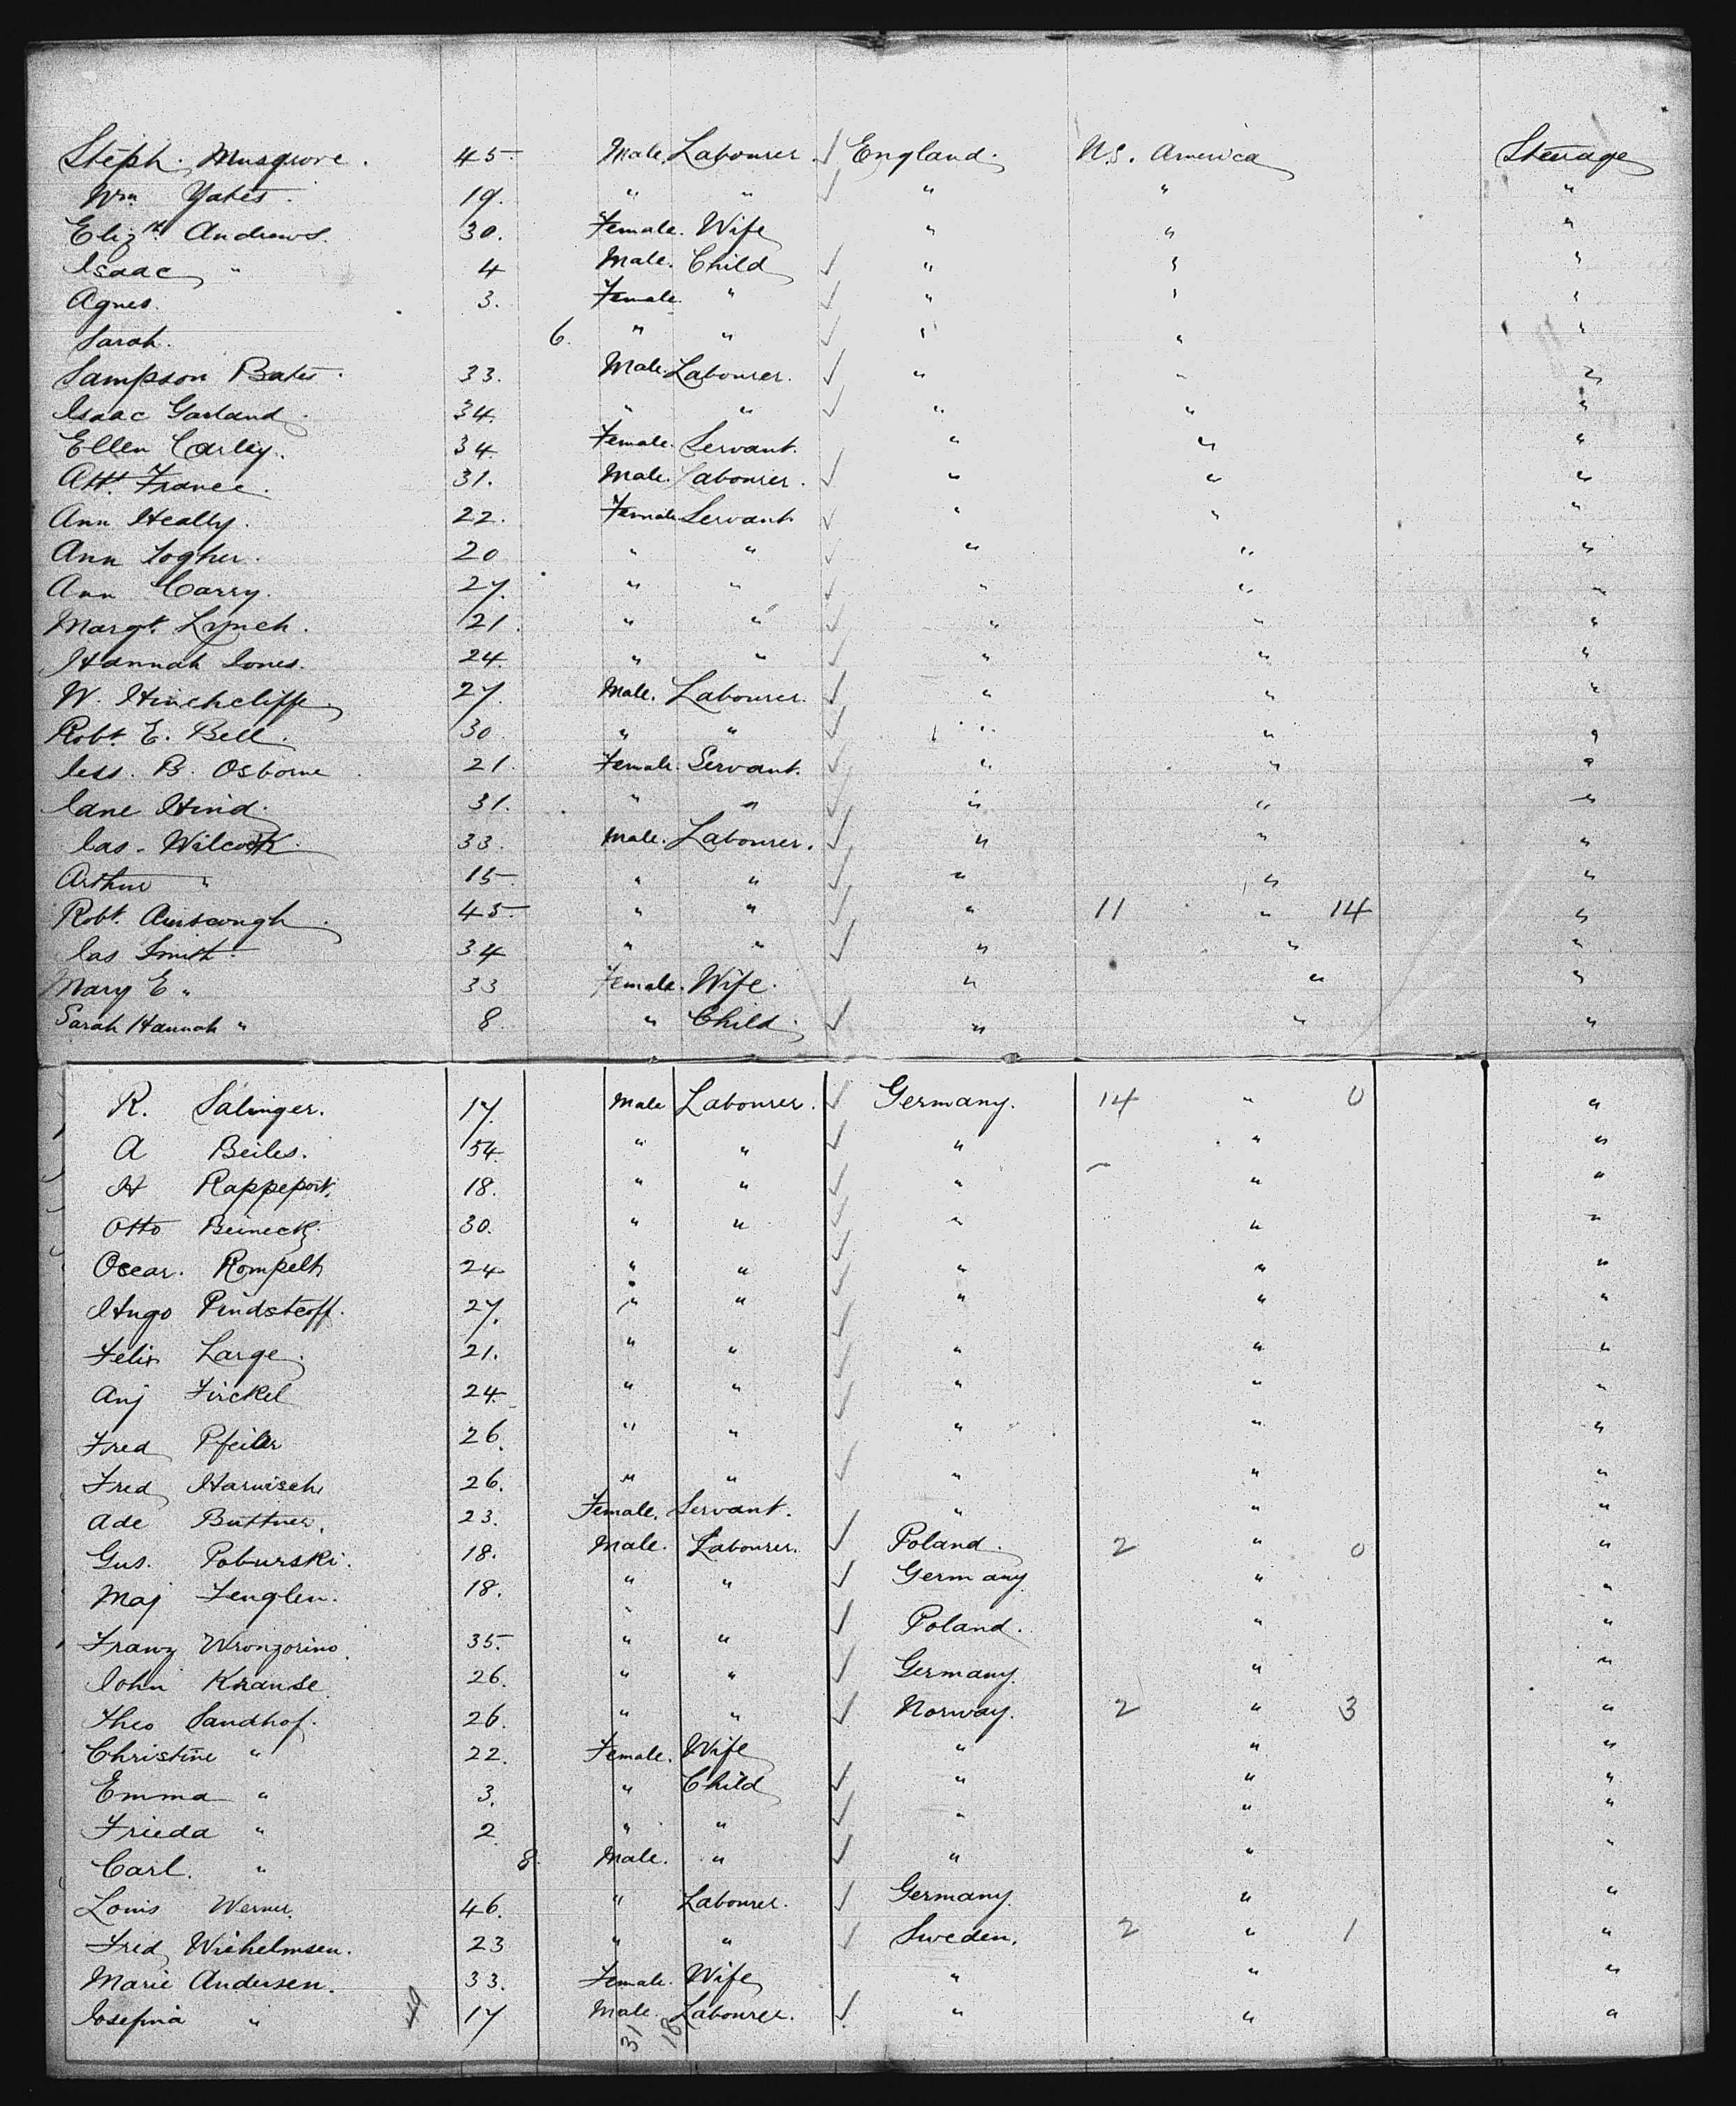 Steph. Musgrove. 45. Male. Labourer. ✓ England. U.S. America Steerage
Wm Yates. 19. " " ✓ " " "
Eliz.th Andrews. 30. Female. Wife " " "
Isaac " 4 Male. Child ✓ " " "
Agnes. 3. Female. " ✓ " " "
Sarah. 6. " " ✓ " " "
Sampson Bates. 33. Male. Labourer. ✓ " " "
Isaac Garland. 34. " " ✓ " " "
Ellen Carley. 34. Female. Servant. " " "
Att. France. 31. Male. Labourer. ✓ " " "
Ann Heally. 22. Female Servant ✓ " " "
Ann Togher. 20 " " ✓ " " "
Ann Carry. 27. " " ✓ " " "
Margt. Lynch. 21. " " ✓ " " "
Hannah Jones. 24. " " ✓ " " "
W. Hinchcliffe. 27. Male. Labourer. ✓ " " "
Robt. E. Bell. 30 " " ✓ " " "
Jess. B. Osborne 21. Female. Servant. ✓ " " "
Jane Hind. 31. " " ✓ " " "
Jas. Wilcock. 33. Male. Labourer. ✓ " " "
Arthur " 15. " " ✓ " " "
Robt. Ainscough. 45. " " ✓ " 11 " 14 "
Jas Smith. 34 " " ✓ " " "
Mary E " 33 Female. Wife. " " "
Sarah Hannah " 8. " Child. ✓ " " "
R. Salinger. 17. Male Labourer. ✓ Germany. 14 " 0 "
A Beiles. 54. " " ✓ " " "
H Rappeport. 18. " " ✓ " " "
Otto Beineck. 30. " " ✓ " " "
Oscar. Rompelt 24 " " ✓ " " "
Hugo Pindsteoff. 27. " " ✓ " " "
Felix Large. 21. " " ✓ " " "
Anj Firckel 24. " " ✓ " " "
Fred Pfeiler 26. " " ✓ " " "
Fred Harwisch 26. " " ✓ " " "
Ade Buttner. 23. Female. Servant. " " "
Gus. Poburski. 18. Male. Labourer. ✓ Poland. 2 " 0 "
Maj Fenglen. 18. " " ✓ Germany " "
Franz Wronzorino. 35. " " ✓ Poland. " "
John Krause 26. " " ✓ Germany. " "
Theo Sandhof. 26. " " ✓ Norway. 2 " 3 "
Christine " 22. Female. Wife " " "
Emma " 3. " Child ✓ " " "
Frieda " 2. " " ✓ " " "
Carl. " 8. Male. " ✓ " " "
Louis Werner. 46. " Labourer. ✓ Germany. " "
Fred Wiehelmsen. 23 " " ✓ Sweden. 2 " 1 "
Marie Andersen. 33. Female. Wife " " "
Josefina " 49 17 Male. Labourer. ✓ " " "
31 18